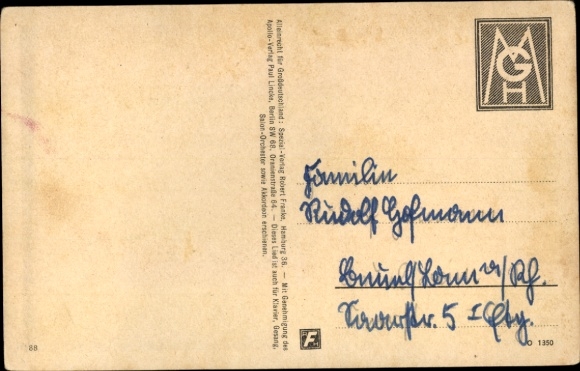 Alleinrecht für Großdeutschland: Spezial-Verlag Robert Franke, Hamburg 36. — Mit Genehmigung des
Apollo-Verlag Paul Lincke, Berlin SW 68, Oranienstraße 64. — Dieses Lied ist auch für Klavier, Gesang,
Salon-Orchester sowie Akkordeon erschienen.
MGH
Familie
Rudolf Hofmann
a/Rh.
Saarstr. 5 I Etg.
F
88
O 1350